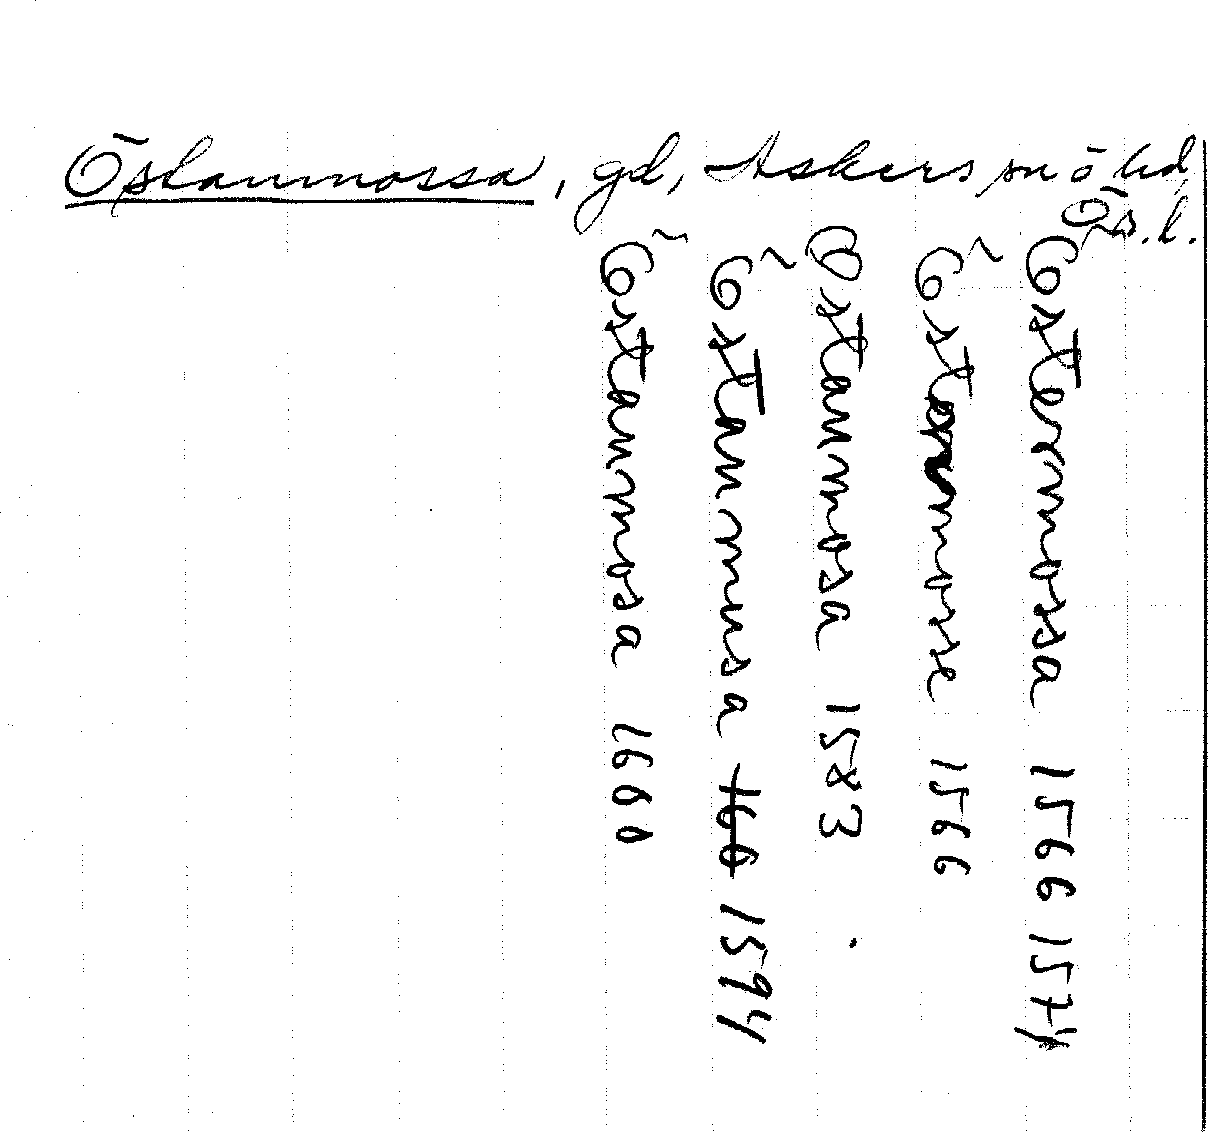 Östanmossa, gd, Askers sn o hd,
Ös.l.
Östermossa 1566 1574
Östermosse 1566
Østanmosa 1583
Östanmusa 1600 1594
Östanmosa 1600